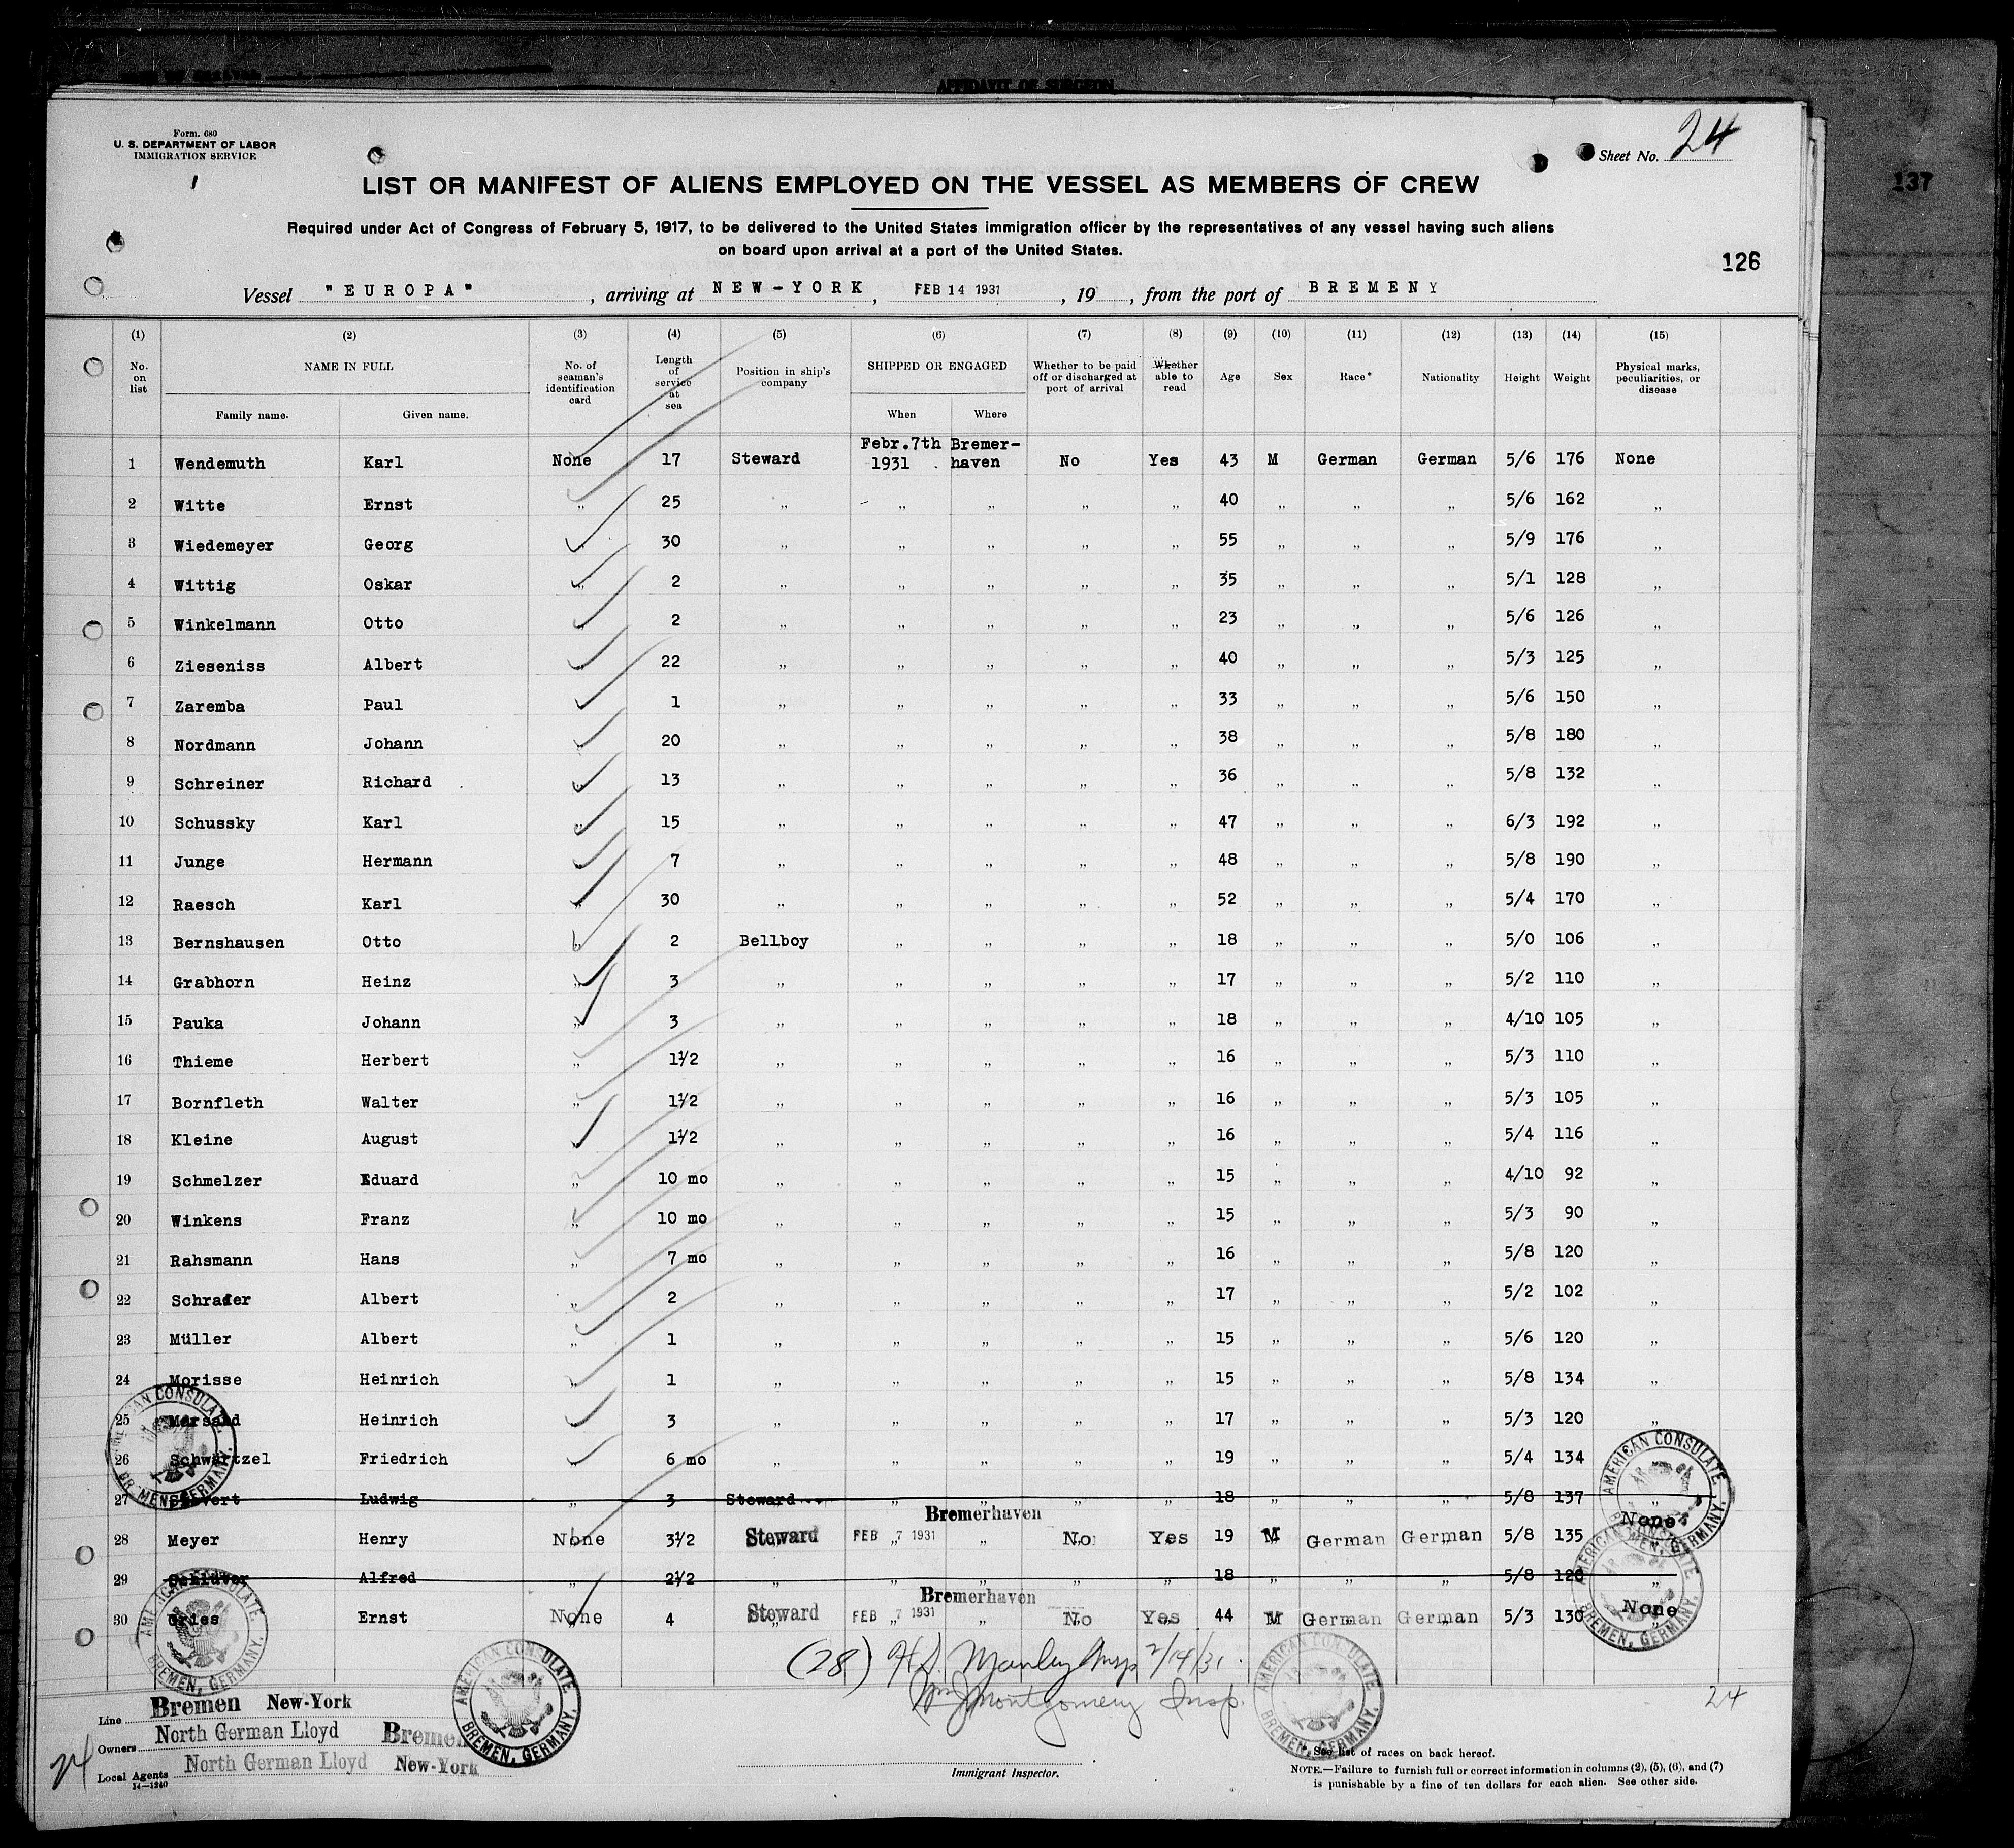 AFFIDAVIT OF SURGEON
Form. 680
U. S. DEPARTMENT OF LABOR
IMMIGRATION SERVICE
Sheet No. 24
137
LIST OR MANIFEST OF ALIENS EMPLOYED ON THE VESSEL AS MEMBERS OF CREW
Required under Act of Congress of February 5, 1917, to be delivered to the United States immigration officer by the representatives of any vessel having such aliens
on board upon arrival at a port of the United States.
126
Vessel "EUROPA", arriving at NEW-YORK, FEB 14 1931, 19, from the port of BREMEN Y
(1) (2) (3) (4) (5) (6) (7) (8) (9) (10) (11) (12) (13) (14) (15)
No. on list NAME IN FULL Family name. Given name. No. of seaman's identification card Length of service at sea Position in ship's company SHIPPED OR ENGAGED When Where Whether to be paid off or discharged at port of arrival Whether able to read Age Sex Race* Nationality Height Weight Physical marks, peculiarities, or disease
1 Wendemuth Karl None 17 Steward Febr.7th 1931 Bremer-haven No Yes 43 M German German 5/6 176 None
2 Witte Ernst „ 25 „ „ „ „ „ 40 „ „ „ 5/6 162 „
3 Wiedemeyer Georg „ 30 „ „ „ „ „ 55 „ „ „ 5/9 176 „
4 Wittig Oskar „ 2 „ „ „ „ „ 35 „ „ „ 5/1 128 „
5 Winkelmann Otto „ 2 „ „ „ „ „ 23 „ „ „ 5/6 126 „
6 Zieseniss Albert „ 22 „ „ „ „ „ 40 „ „ „ 5/3 125 „
7 Zaremba Paul „ 1 „ „ „ „ „ 33 „ „ „ 5/6 150 „
8 Nordmann Johann „ 20 „ „ „ „ „ 38 „ „ „ 5/8 180 „
9 Schreiner Richard „ 13 „ „ „ „ „ 36 „ „ „ 5/8 132 „
10 Schussky Karl „ 15 „ „ „ „ „ 47 „ „ „ 6/3 192 „
11 Junge Hermann „ 7 „ „ „ „ „ 48 „ „ „ 5/8 190 „
12 Raesch Karl „ 30 „ „ „ „ „ 52 „ „ „ 5/4 170 „
13 Bernshausen Otto „ 2 Bellboy „ „ „ „ 18 „ „ „ 5/0 106 „
14 Grabhorn Heinz „ 3 „ „ „ „ „ 17 „ „ „ 5/2 110 „
15 Pauka Johann „ 3 „ „ „ „ „ 18 „ „ „ 4/10 105 „
16 Thieme Herbert „ 1½ „ „ „ „ „ 16 „ „ „ 5/3 110 „
17 Bornfleth Walter „ 1½ „ „ „ „ „ 16 „ „ „ 5/3 105 „
18 Kleine August „ 1½ „ „ „ „ „ 16 „ „ „ 5/4 116 „
19 Schmelzer Eduard „ 10 mo „ „ „ „ „ 15 „ „ „ 4/10 92 „
20 Winkens Franz „ 10 mo „ „ „ „ „ 15 „ „ „ 5/3 90 „
21 Rahsmann Hans „ 7 mo „ „ „ „ „ 16 „ „ „ 5/8 120 „
22 Schrader Albert „ 2 „ „ „ „ „ 17 „ „ „ 5/2 102 „
23 Müller Albert „ 1 „ „ „ „ „ 15 „ „ „ 5/6 120 „
24 Morisse Heinrich „ 1 „ „ „ „ „ 15 „ „ „ 5/8 134 „
25 Heinrich „ 3 „ „ „ „ „ 17 „ „ „ 5/3 120 „
26 Schwartzel Friedrich „ 6 mo „ „ „ „ „ 19 „ „ „ 5/4 134 „
27 Ludwig „ 3 Steward „ „ „ „ 18 „ „ „ 5/8 137 „
28 Meyer Henry None 3½ Steward FEB 7 1931 Bremerhaven No Yes 19 M German German 5/8 135 None
29 Alfred „ 2½ „ „ „ „ „ 18 „ „ „ 5/8 120 „
30 Gries Ernst None 4 Steward FEB 7 1931 Bremerhaven No Yes 44 M German German 5/3 130 None
AMERICAN CONSULATE BREMEN, GERMANY.
AMERICAN CONSULATE BREMEN, GERMANY.
AMERICAN CONSULATE BREMEN, GERMANY.
AMERICAN CONSULATE BREMEN, GERMANY.
AMERICAN CONSULATE BREMEN, GERMANY.
AMERICAN CONSULATE BREMEN, GERMANY.
(28) H.D. Manley Insp 2/14/31.
Wm J Montgomery Insp.
24
Line Bremen New-York
Owners North German Lloyd Bremen
Local Agents North German Lloyd New-York
24
14—1240
Immigrant Inspector.
* See list of races on back hereof.
NOTE.—Failure to furnish full or correct information in columns (2), (5), (6), and (7)
is punishable by a fine of ten dollars for each alien. See other side.